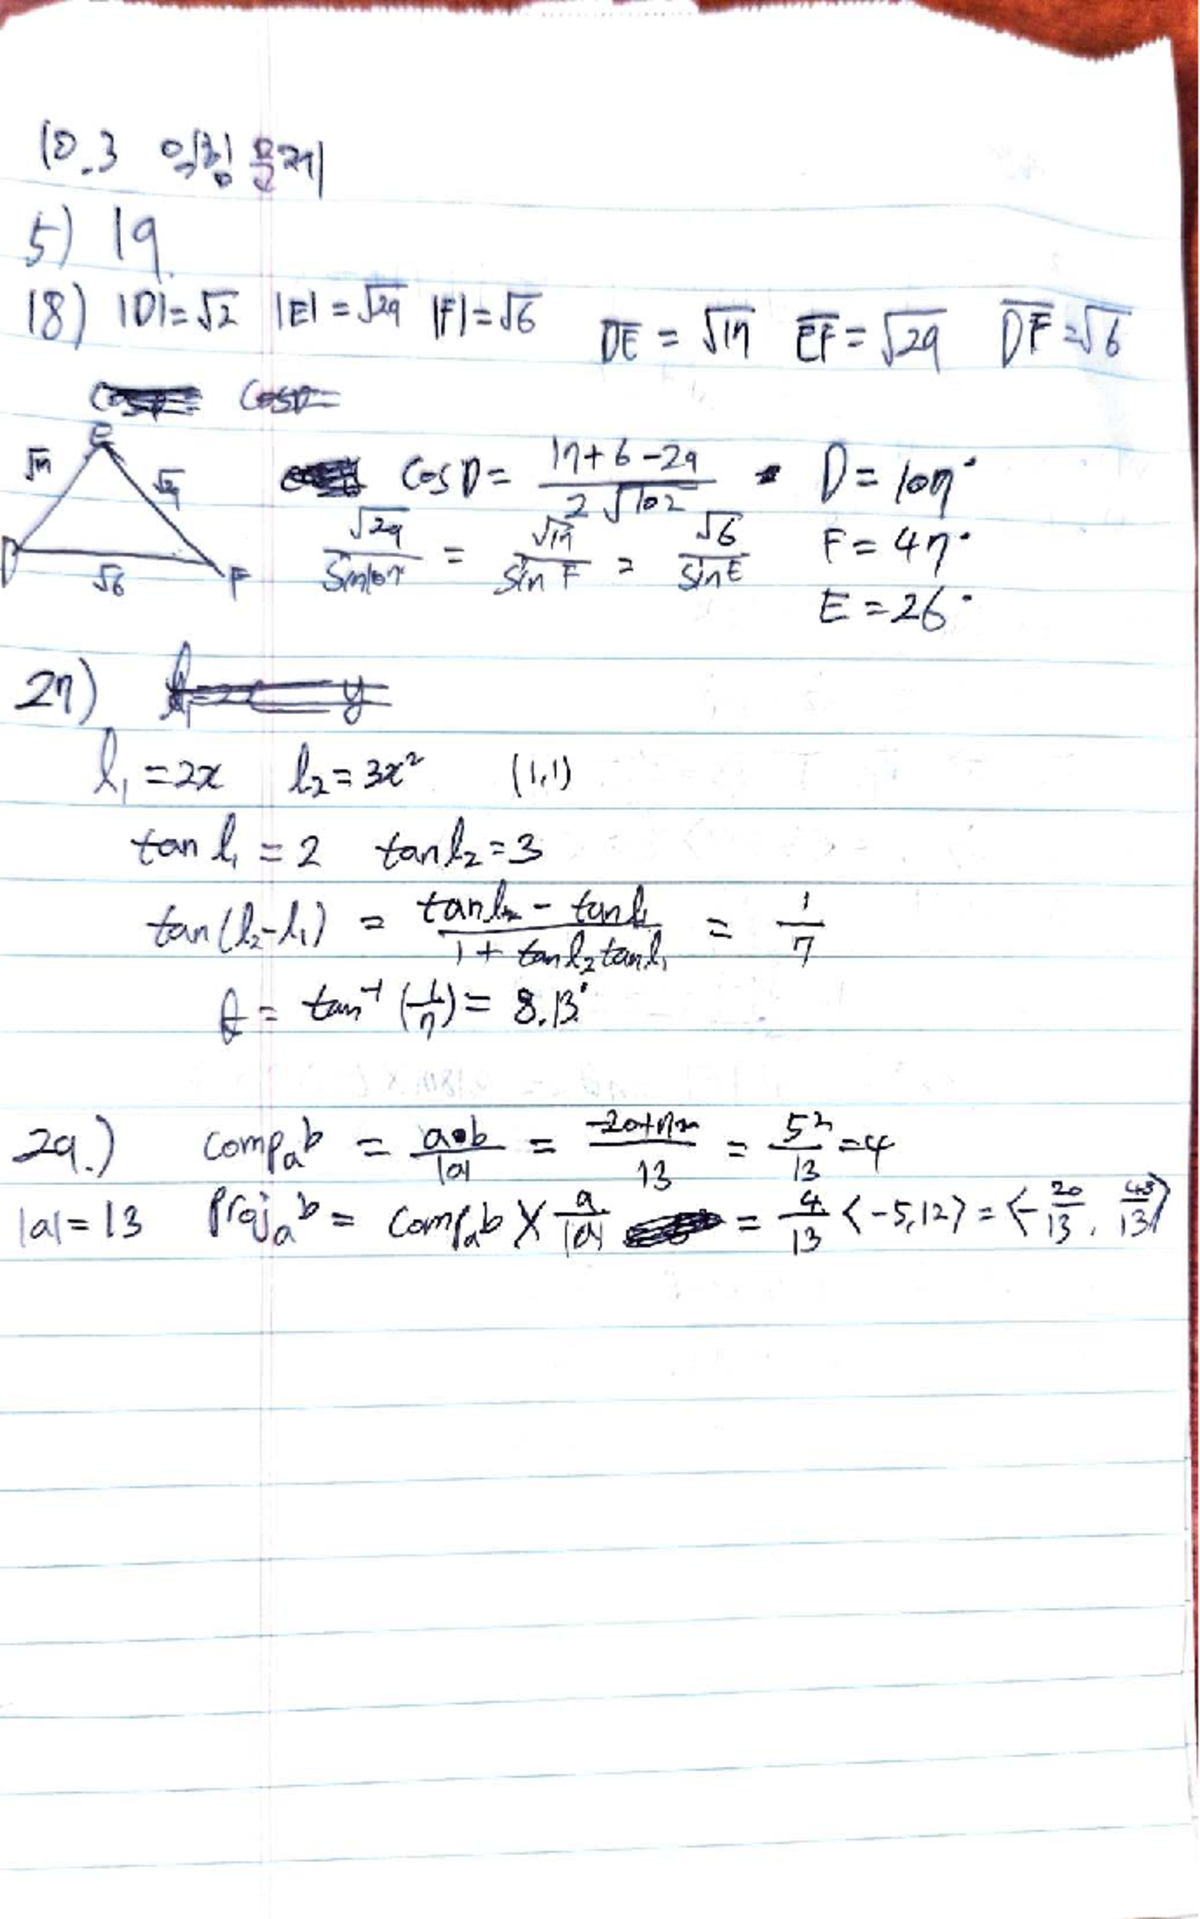 10.3 연습문제
5) 19.
18) |D|=√2 |E|=√29 |F|=√6 DE = √17 EF=√29 DF=√6
CosD=
E
√17 √29
D √6 F
Cos D = (17+6-29)/(2√102) D = 107°
√29/Sin107 = √17/Sin F = √6/Sin E F = 47°
E = 26°
27)
l₁ = 2x l₂ = 3x² (1,1)
tan l₁ = 2 tan l₂ = 3
tan(l₂-l₁) = (tan l₂ - tan l₁)/(1 + tan l₂ tan l₁) = 1/7
θ = tan⁻¹(1/7) = 8.13°
29.) compₐb = a•b/|a| = /13 = 52/13 = 4
|a| = 13 Projₐb = Compₐb × a/|a| = 4/13 <-5,12> = <-20/13, 48/13>